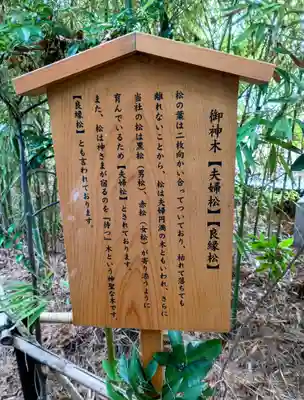 御神木【夫婦松】【良縁松】
松の葉は二枚向かい合ってついており、枯れて落ちても
離れないことから、松は夫婦円満の木ともいわれ、さらに
当社の松は黒松（男松）、赤松（女松）が寄り添うように
育んでいるため【夫婦松】とされております。
また、松は神さまが宿るのを『待つ』木という神聖な木です。
【良縁松】とも言われております。